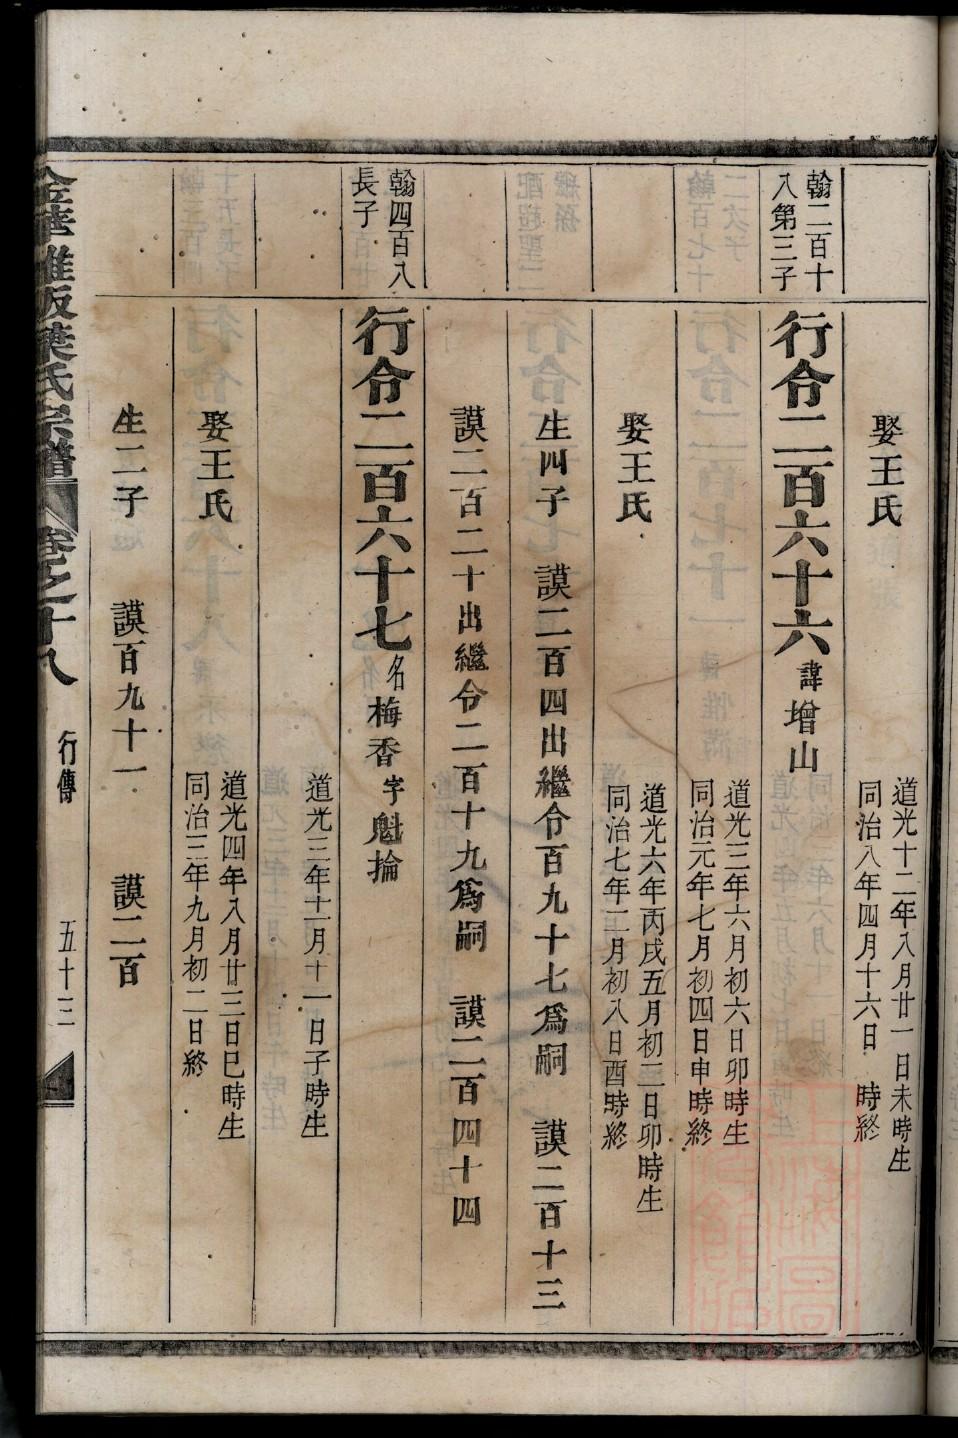 娶王氏
道光十二年八月廿一日未時生
同治八年四月十六日 時終
翰二百十
八第三子
行令二百六十六 諱增山
道光三年六月初六日卯時生
同治元年七月初四日申時終
娶王氏
道光六年丙戌五月初二日卯時生
同治七年二月初八日酉時終
生四子 謨二百四出繼令百九十七爲嗣 謨二百十三
謨二百二十出繼令二百十九爲嗣 謨二百四十四
翰四百八
長子
行令二百六十七 名梅香字魁掄
道光三年十二月十一日子時生
娶王氏
道光四年八月廿三日巳時生
同治三年九月初二日終
生二子 謨百九十一 謨二百
葉氏宗譜 卷之十八 行傳 五十三